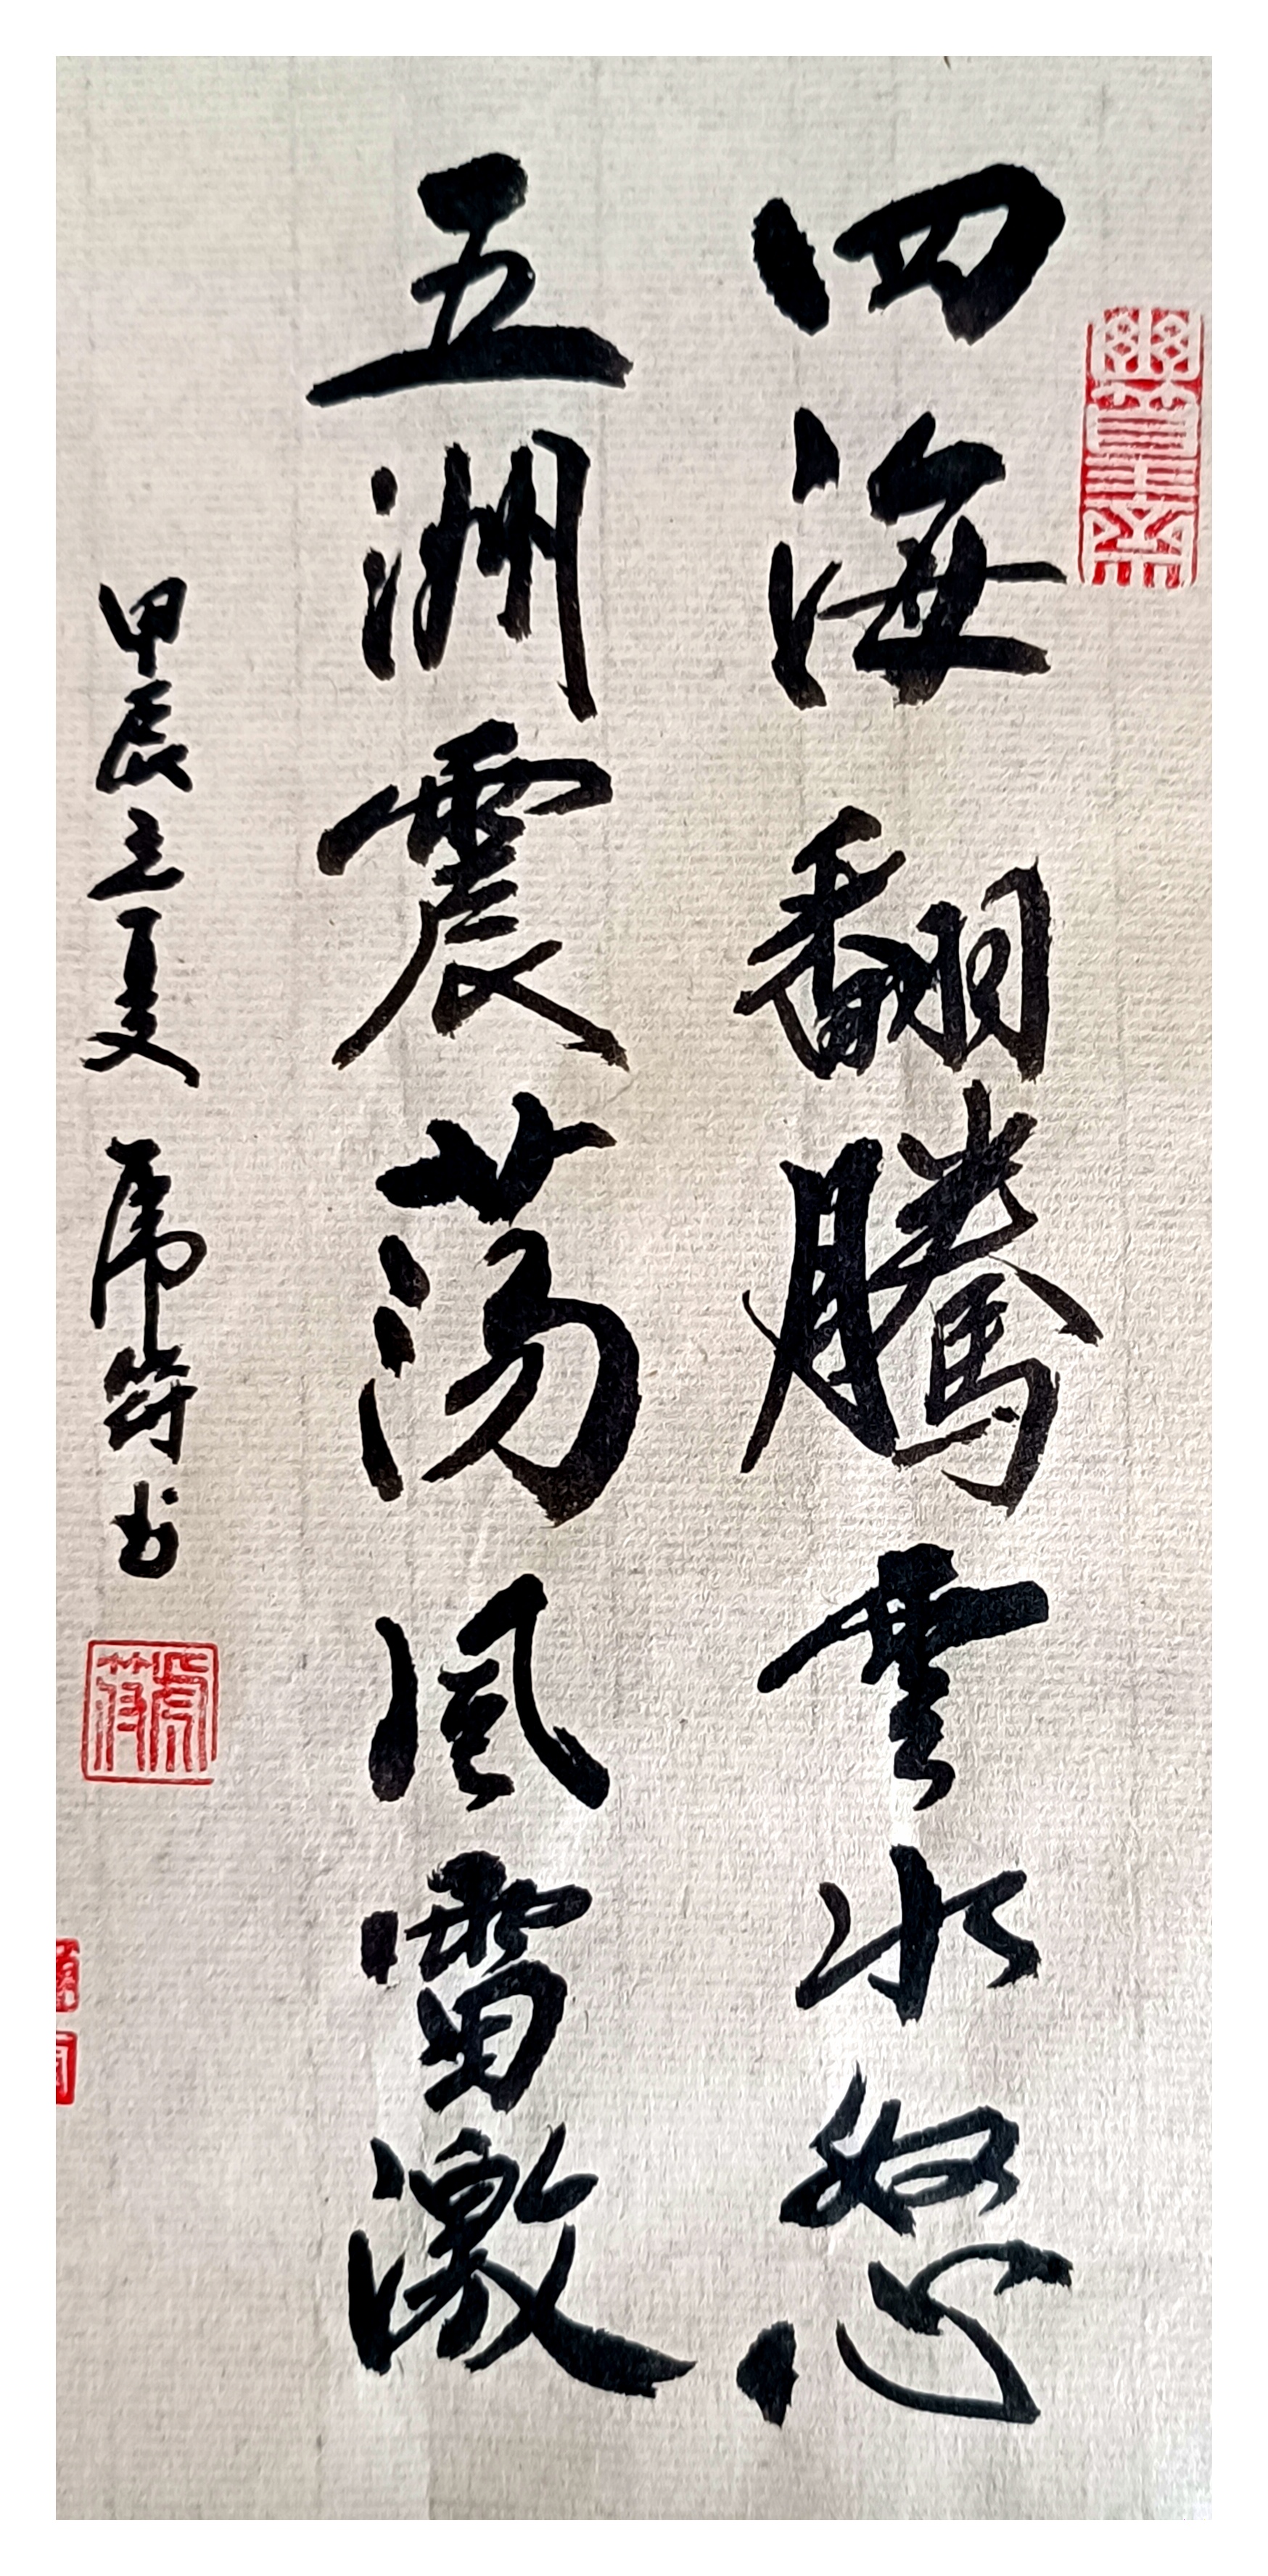 四海翻騰雲水怒
五洲震荡風雷激
甲辰立夏 虎符书